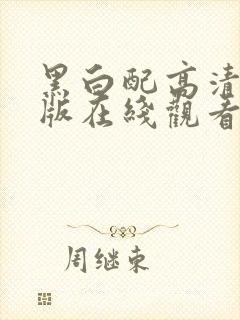 黑白配高清
版在线觀看
周继東